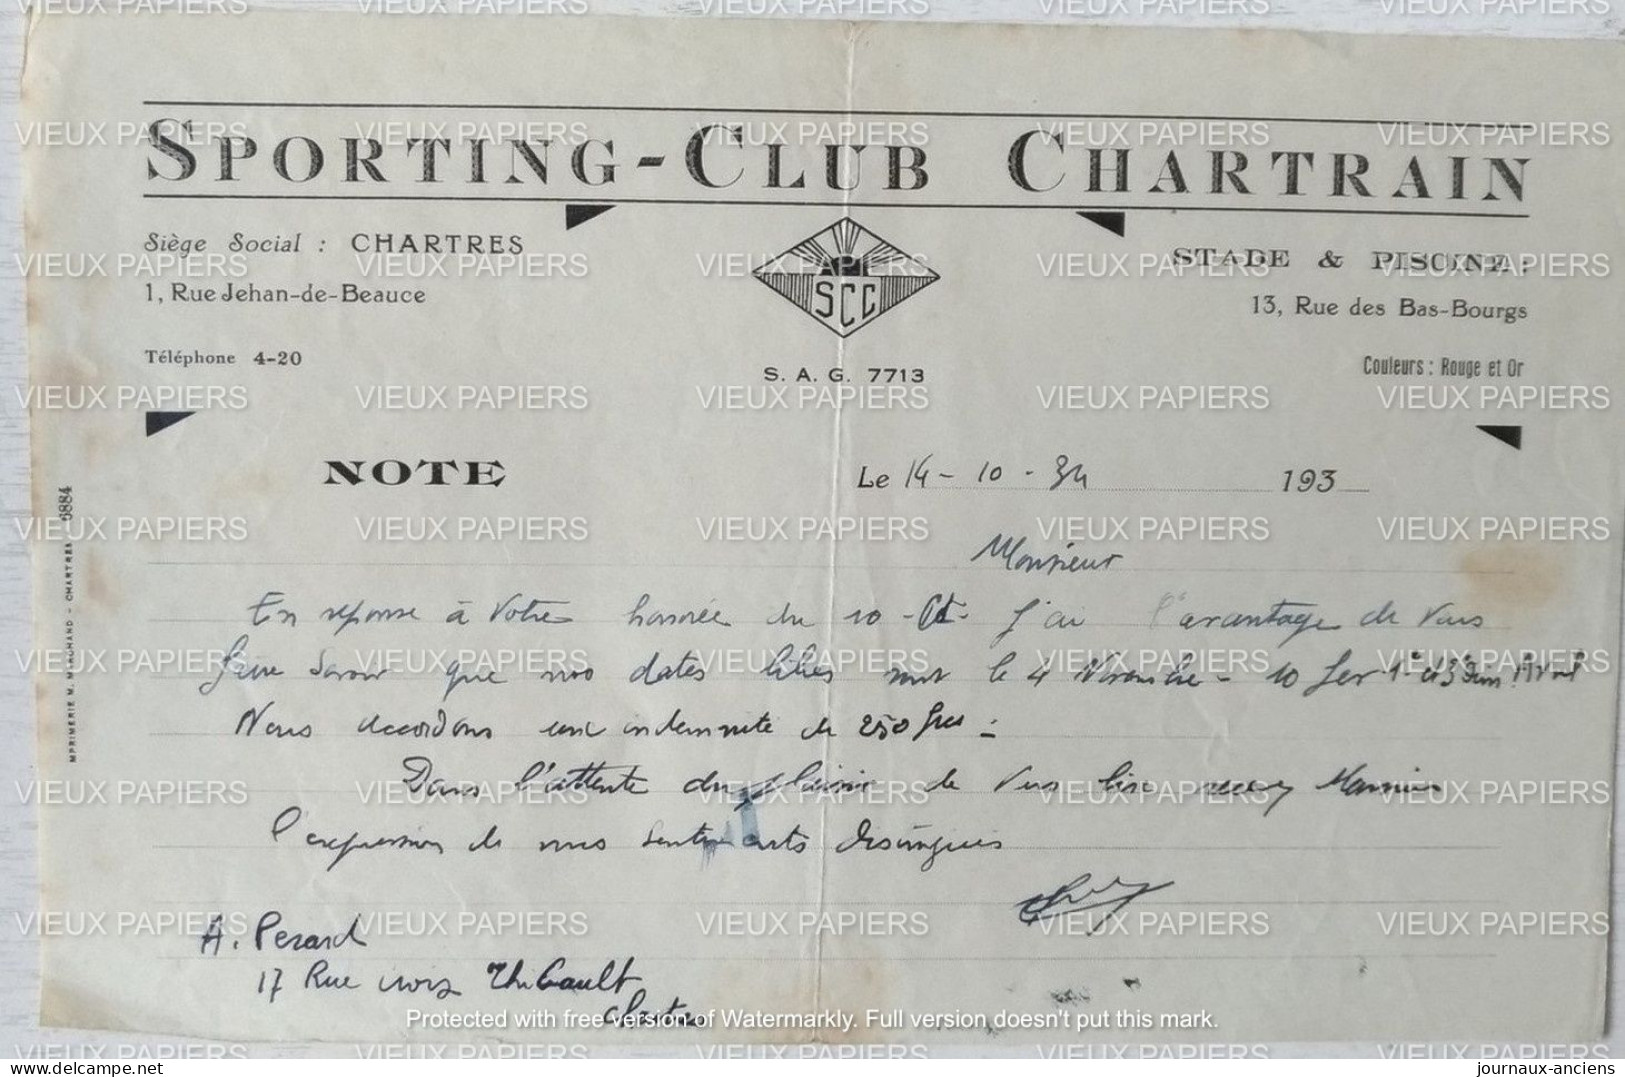 SPORTING-CLUB CHARTRAIN
Siège Social : CHARTRES
1, Rue Jehan-de-Beauce
Téléphone 4-20
SCC
S. A. G. 7713
STADE & PISCINE :
13, Rue des Bas-Bourgs
Couleurs : Rouge et Or
NOTE
Le 14-10-34 193
Monsieur
En réponse à votre honorée du 10 - Ct - J'ai l'avantage de vous
faire savoir que nos dates libres sont le 4 Novembre - 10 Fev 1e et 3e Dim. Avril
Nous accordons une indemnité de 250 frcs -
Dans l'attente du plaisir de vous lire recevez Monsieur
l'expression de nos sentiments distingués
A. Perard
17 Rue croix Thibault
Chartres
IMPRIMERIE M. MARCHAND - CHARTRES 6884
VIEUX PAPIERS
Protected with free version of Watermarkly. Full version doesn't put this mark.
www.delcampe.net
journaux-anciens